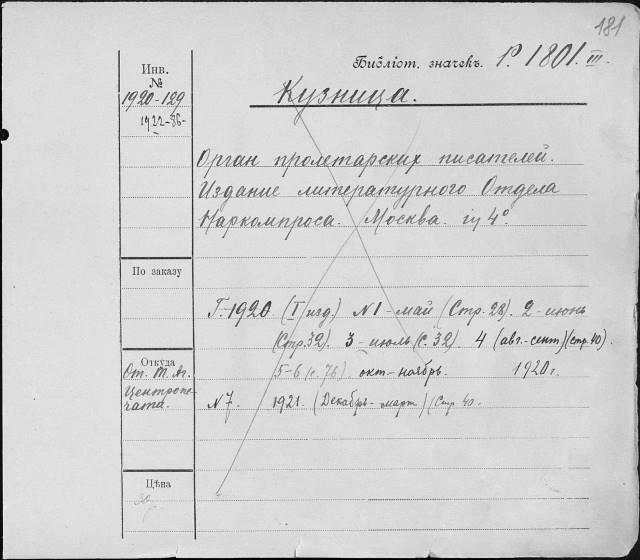 181
Библіот. значекъ. Р. 1801. III.
Инв.
№
1920-129
1922-86-
Кузница.
Орган пролетарских писателей.
Издание литературного Отдела
Наркомпроса. Москва. 4°.
По заказу
Г. 1920. (I изд.) №1-май (Стр. 28). 2-июнь
(Стр. 32). 3-июль (с. 32). 4 (авг.-сент) (стр. 40).
Откуда
5-6 (с. 76) окт-ноябрь. 1920 г.
От. Т. Аг.
Центропе-
чата.
№7. 1921. (Декабрь-март) (Стр. 40.
Цѣна